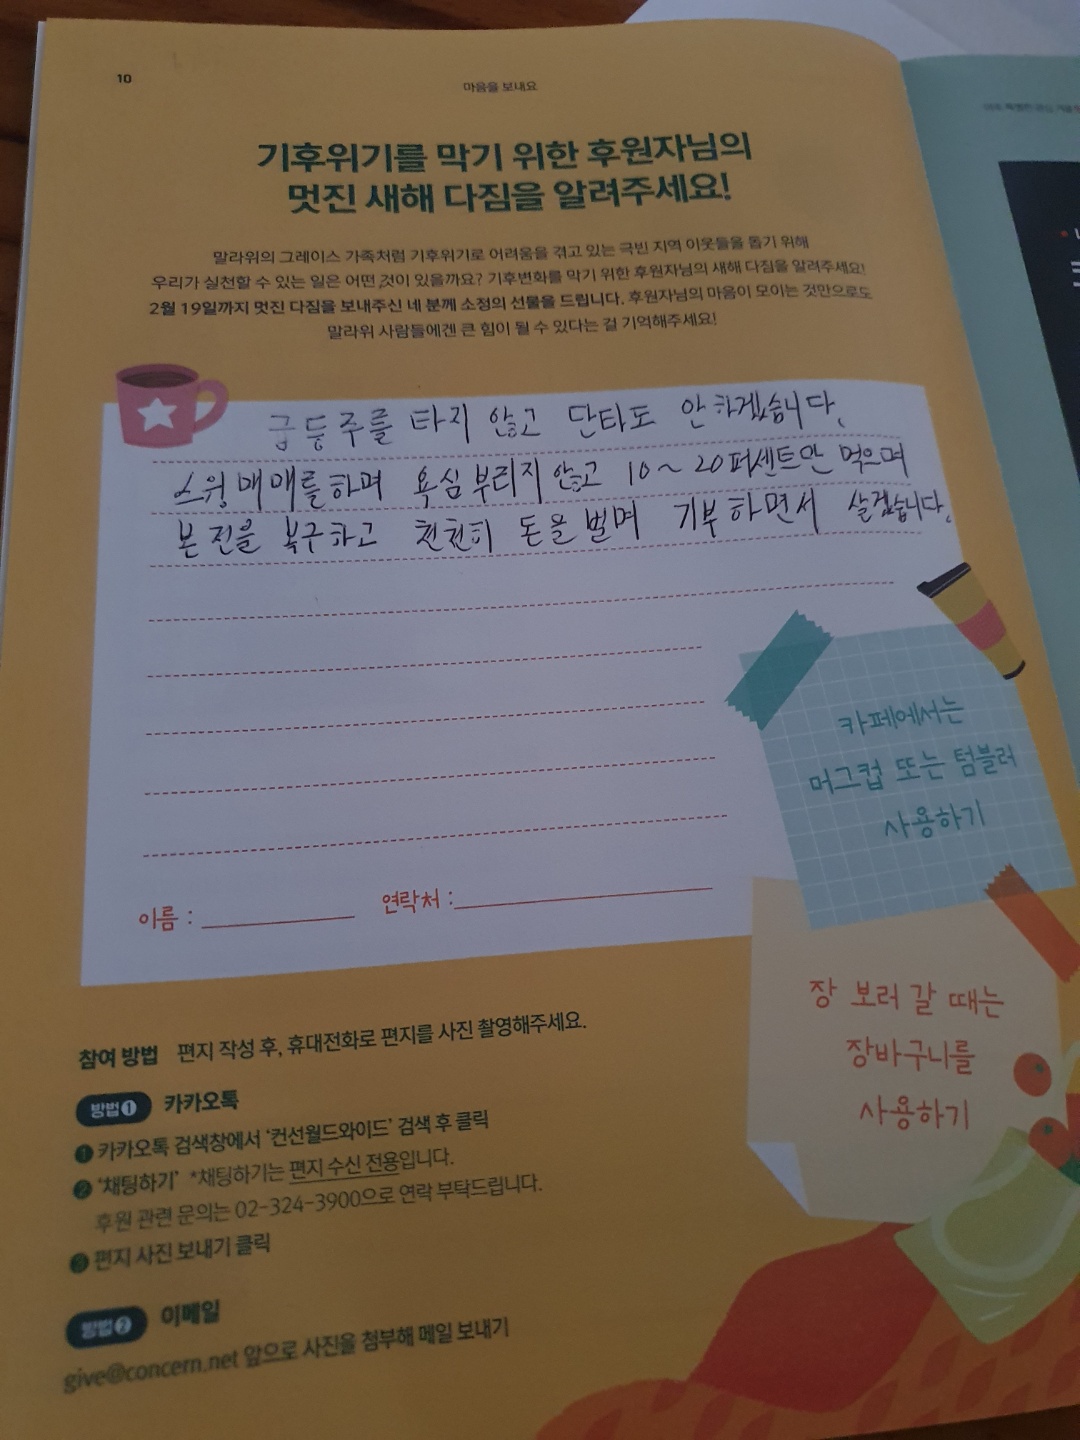 10
마음을 보내요
기후위기를 막기 위한 후원자님의
멋진 새해 다짐을 알려주세요!
말라위의 그레이스 가족처럼 기후위기로 어려움을 겪고 있는 극빈 지역 이웃들을 돕기 위해
우리가 실천할 수 있는 일은 어떤 것이 있을까요? 기후변화를 막기 위한 후원자님의 새해 다짐을 알려주세요!
2월 19일까지 멋진 다짐을 보내주신 네 분께 소정의 선물을 드립니다. 후원자님의 마음이 모이는 것만으로도
말라위 사람들에겐 큰 힘이 될 수 있다는 걸 기억해주세요!
급등주를 타지 않고 단타도 안 하겠습니다.
스윙매매를 하며 욕심부리지 않고 10~20퍼센트만 먹으며
본전을 복구하고 천천히 돈을 벌며 기부하면서 살겠습니다.
카페에서는
머그컵 또는 텀블러
사용하기
이름 : 연락처 :
장 보러 갈 때는
장바구니를
사용하기
참여 방법 편지 작성 후, 휴대전화로 편지를 사진 촬영해주세요.
방법❶ 카카오톡
❶ 카카오톡 검색창에서 '컨선월드와이드' 검색 후 클릭
❷ '채팅하기' *채팅하기는 편지 수신 전용입니다.
후원 관련 문의는 02-324-3900으로 연락 부탁드립니다.
❸ 편지 사진 보내기 클릭
방법❷ 이메일
give@concern.net 앞으로 사진을 첨부해 메일 보내기